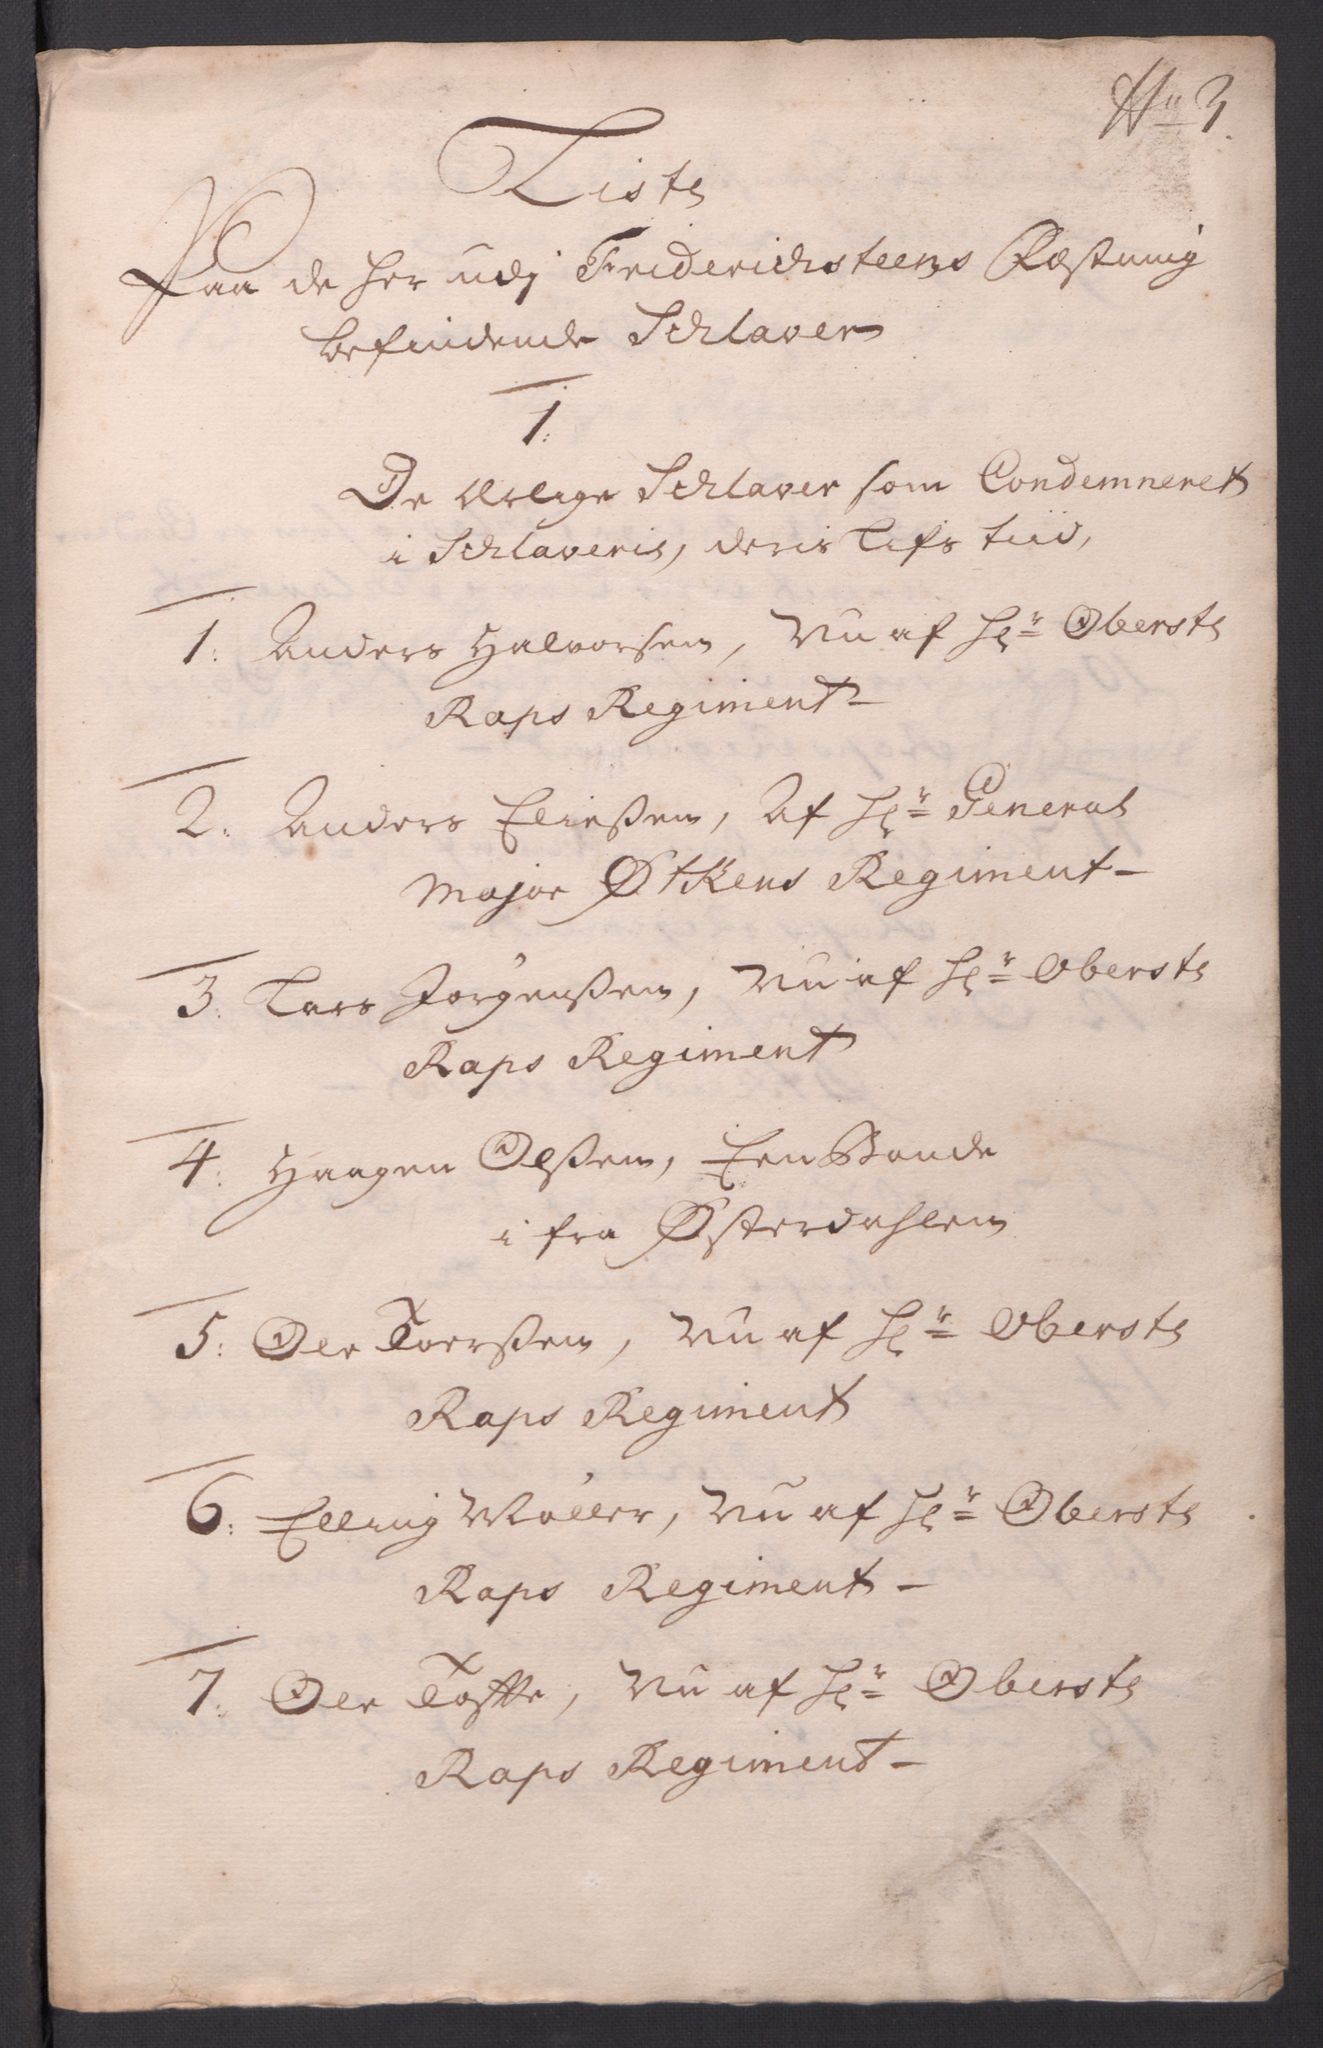 No 3.
Liste
Paa de her udj Friderichsteens Fæstning
befindende Schlaver
1.
De Ærlige Schlaver som Condemneret
i Schlaverie, deris Lifs tiid,
1. Anders Halvorsen, Nu af Hr Oberste
Raps Regiment
2. Anders Eliesen, Af Hr General
Major Øtkens Regiment
3. Lars Jörgensen, Nu af Hr Oberste
Raps Regiment
4. Haagen Olsen, Een Bonde
i fra Østerdahlen
5. Ole Toersen, Nu af Hr Oberste
Raps Regiment
6. Elling Möller, Nu af Hr Oberste
Raps Regiment
7. Ole Tofte, Nu af Hr Oberste
Raps Regiment